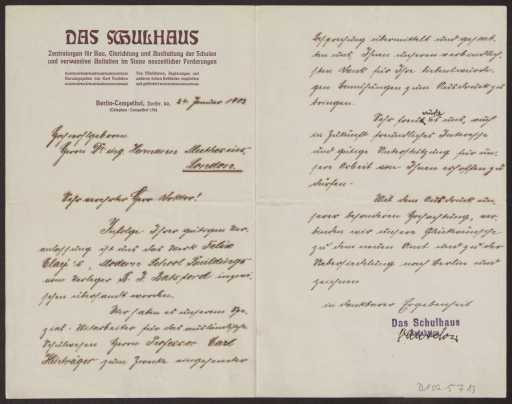 DAS SCHULHAUS
Zentralorgan für Bau, Einrichtung und Ausstattung der Schulen
und verwandten Anstalten im Sinne neuzeitlicher Forderungen
Berlin-Tempelhof, 24 Januar 1903
Hochwohlgeboren
Herrn Dr. ing. Hermann Muthesius
London.
Sehr verehrter Herr Doktor!
Infolge Ihrer gütigen Ver-
anlassung ist uns das Werk Felix
Clay's "Modern School Buildings"
vom Verleger B. T. Batsford inzwi-
schen übersandt worden.
Wir haben es unserem Spe-
zial-Mitarbeiter für das ausländische
Schulwesen Herrn Professor Carl
Hinträger zum Zwecke eingehender
Besprechung übermittelt und gestat-
ten uns, Ihnen unseren verbindlich-
sten Dank für Ihre liebenswürdi-
gen Bemühungen zum Ausdruck zu
bringen.
Sehr würde es uns, auch
in Zukunft freundliches Interesse
und gütige Unterstützung für un-
sere Arbeit von Ihnen erhoffen zu
dürfen.
Mit dem Ausdruck un-
serer besonderen Hochachtung, ver-
binden wir unsere Glückwünsche
zu dem neuen Amt und zu der
Uebersiedelung nach Berlin und
zeichnen
in dankbarer Ergebenheit
Das Schulhaus